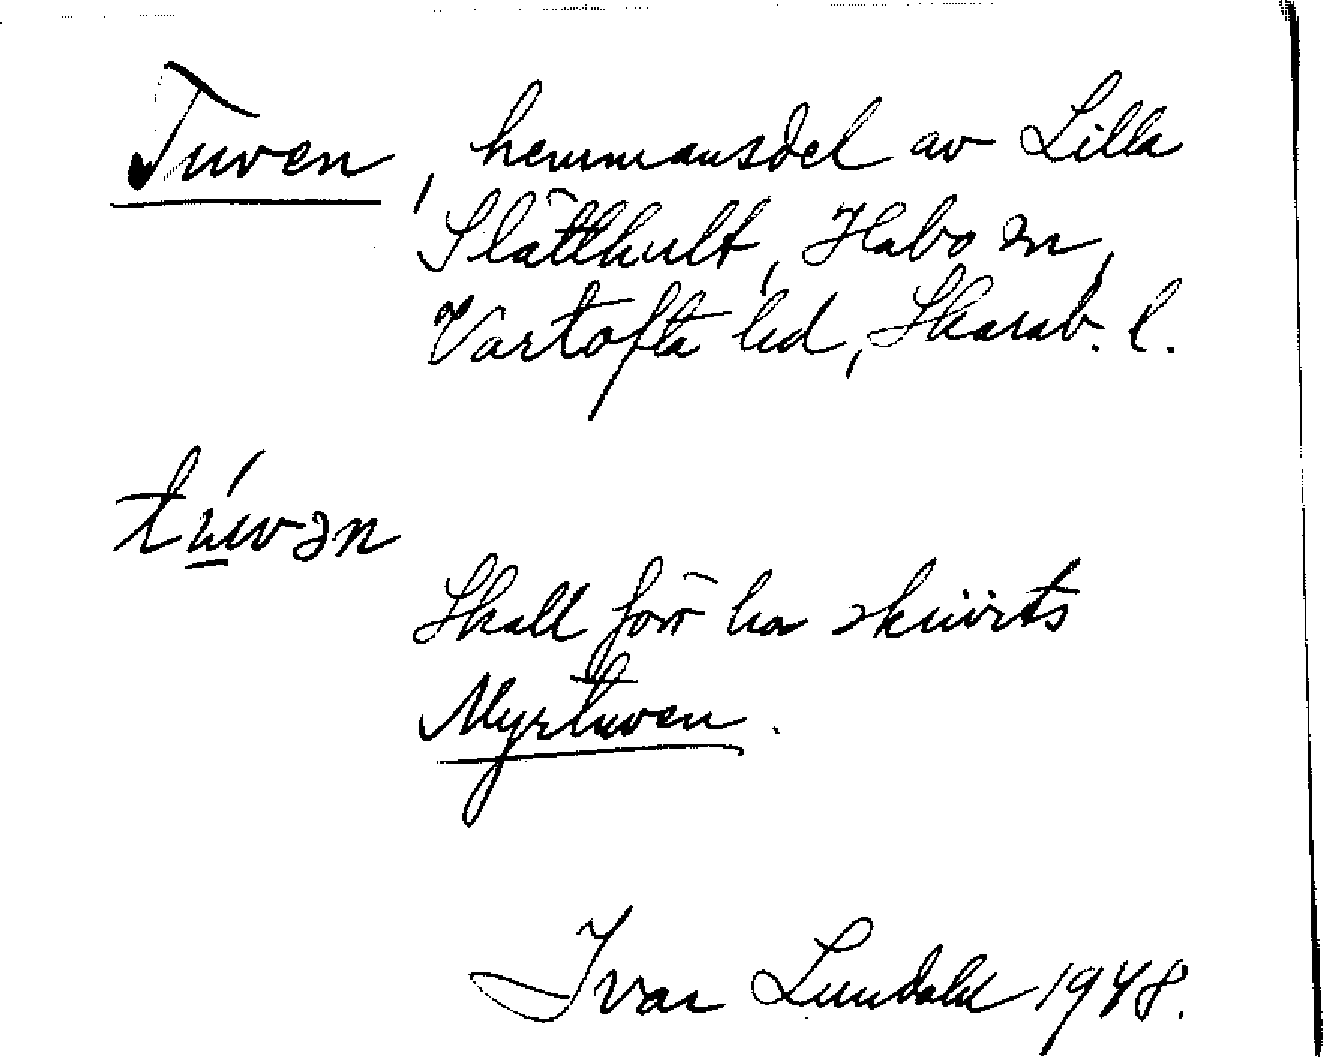 Tuven, hemmansdel av Lilla
Slätthult, Habo sn,
Vartofta hd, Skarab. l.
tú̲vən
Skall förr ha skrivits
Myrtuven.
Ivar Lundahl 1948.